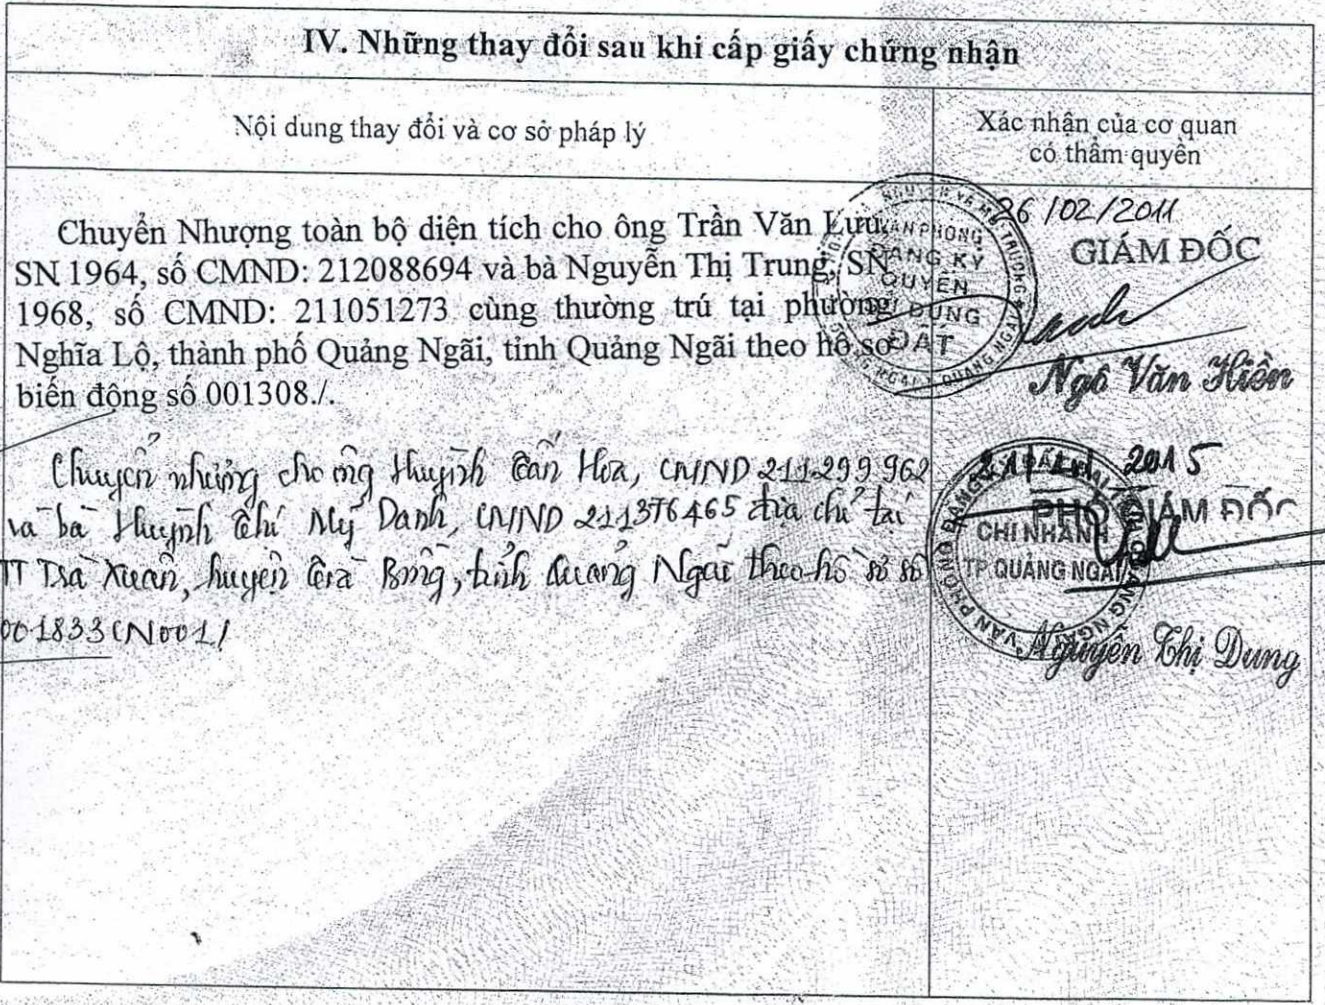 IV. Những thay đổi sau khi cấp giấy chứng nhận
Nội dung thay đổi và cơ sở pháp lý
Xác nhận của cơ quan
có thẩm quyền
Chuyển Nhượng toàn bộ diện tích cho ông Trần Văn Lưu,
SN 1964, số CMND: 212088694 và bà Nguyễn Thị Trung, SN
1968, số CMND: 211051273 cùng thường trú tại phường
Nghĩa Lộ, thành phố Quảng Ngãi, tỉnh Quảng Ngãi theo hồ sơ
biến động số 001308./.
26/02/2011
GIÁM ĐỐC
VĂN PHÒNG
ĐĂNG KÝ
QUYỀN
SỬ DỤNG
ĐẤT
Ngô Văn Hiền
Chuyển nhượng cho ông Huỳnh Tấn Hoa, CMND 211299962
và bà Huỳnh Thị Mỹ Danh, CMND 211376465 địa chỉ tại
TT Trà Xuân, huyện Trà Bồng, tỉnh Quảng Ngãi theo hồ sơ số
001833CN001/
2015
PHÓ GIÁM ĐỐC
CHI NHÁNH
TP QUẢNG NGÃI
Nguyễn Thị Dung